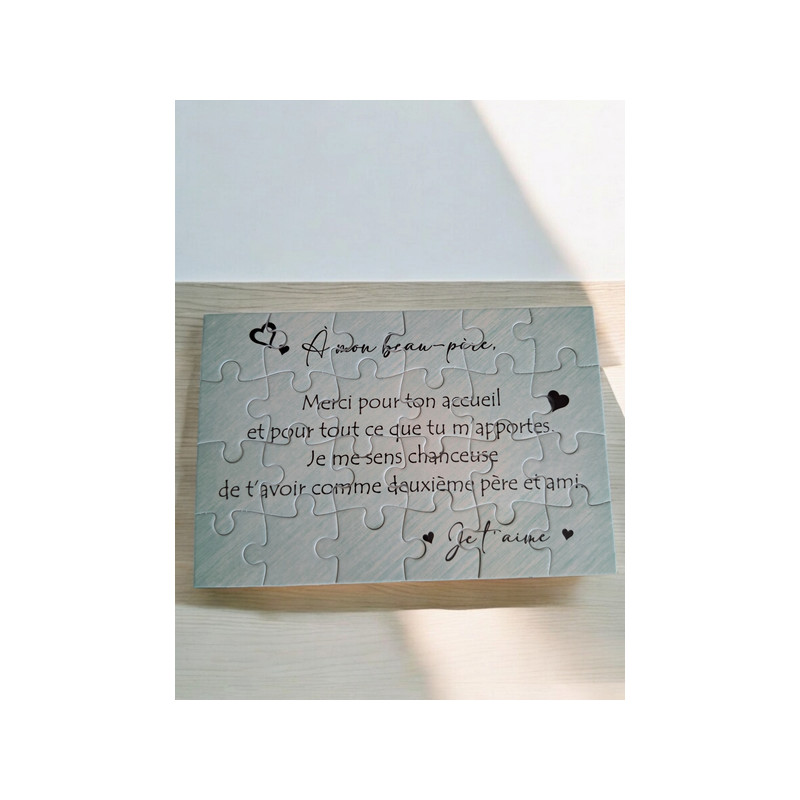 À mon beau-père,
Merci pour ton accueil
et pour tout ce que tu m'apportes.
Je me sens chanceuse
de t'avoir comme deuxième père et ami.
Je t'aime